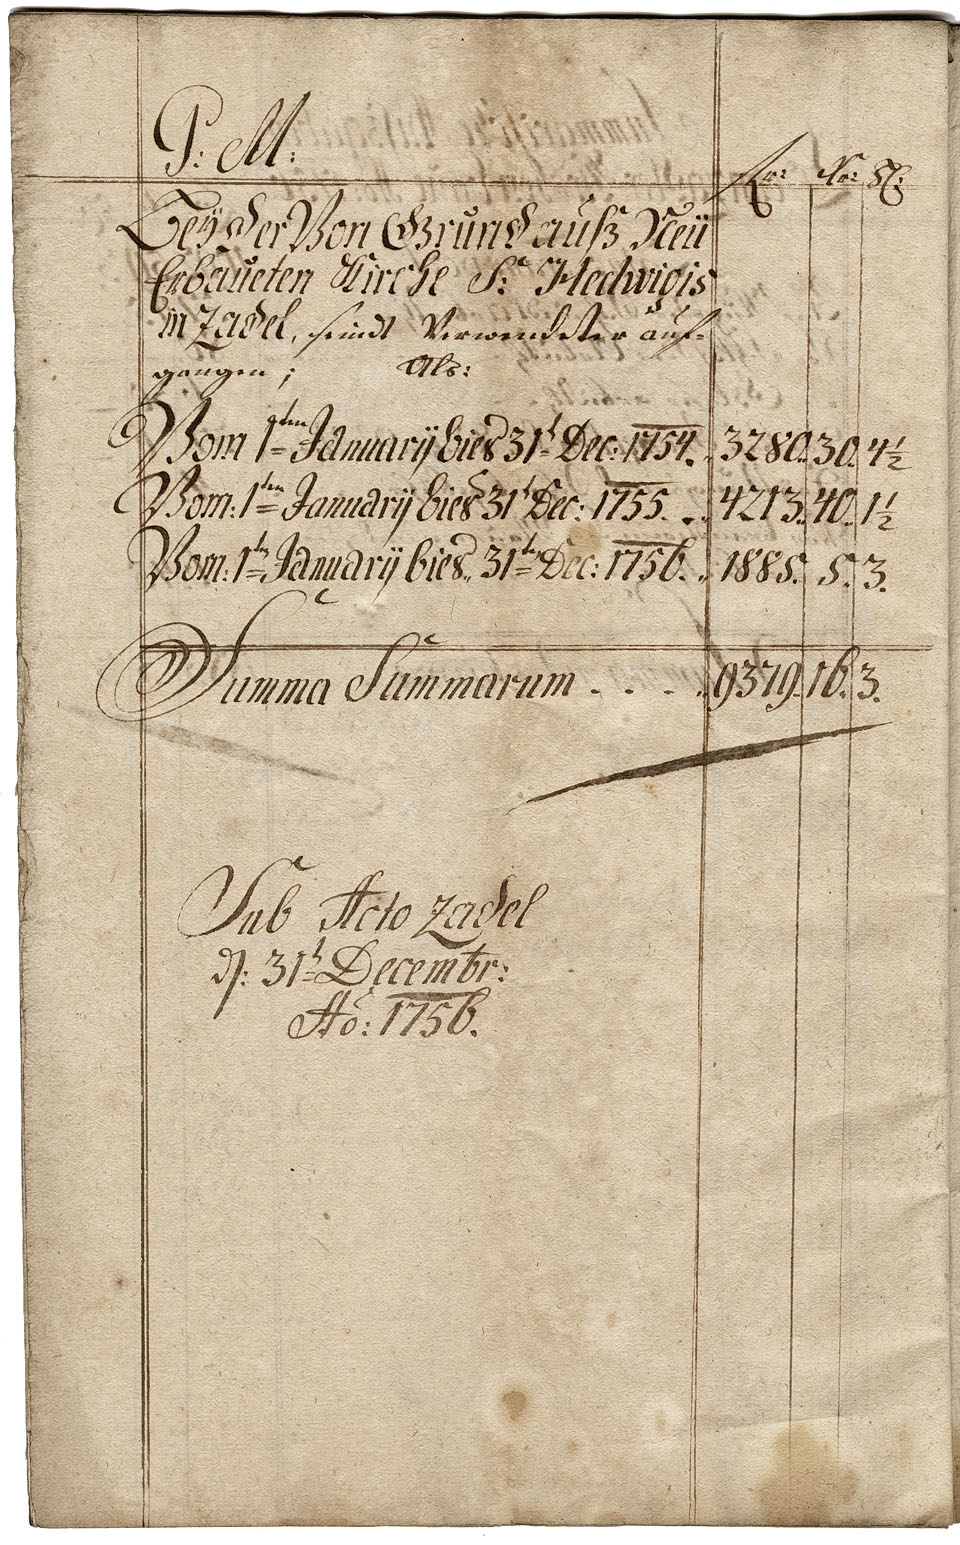 P: M:
fr: Xr: hl:
Beÿ der Von Grund auß Neü
Erbaueten Kirche S: Hedwigis
in Zadel, seindt Verwendeter auf-
gangen; Als:
Vom 1ten January bies 31t Dec: 1754. 3280. 30. 4½
Vom: 1ten January bies 31t Dec: 1755. 4213. 40. 1½
Vom: 1ten January bies 31ten Dec: 1756. 1885. 5. 3.
Summa Summarum . . . . 9379. 16. 3.
Sub Acto Zadel
d: 31t Decembr:
Ao: 1756.